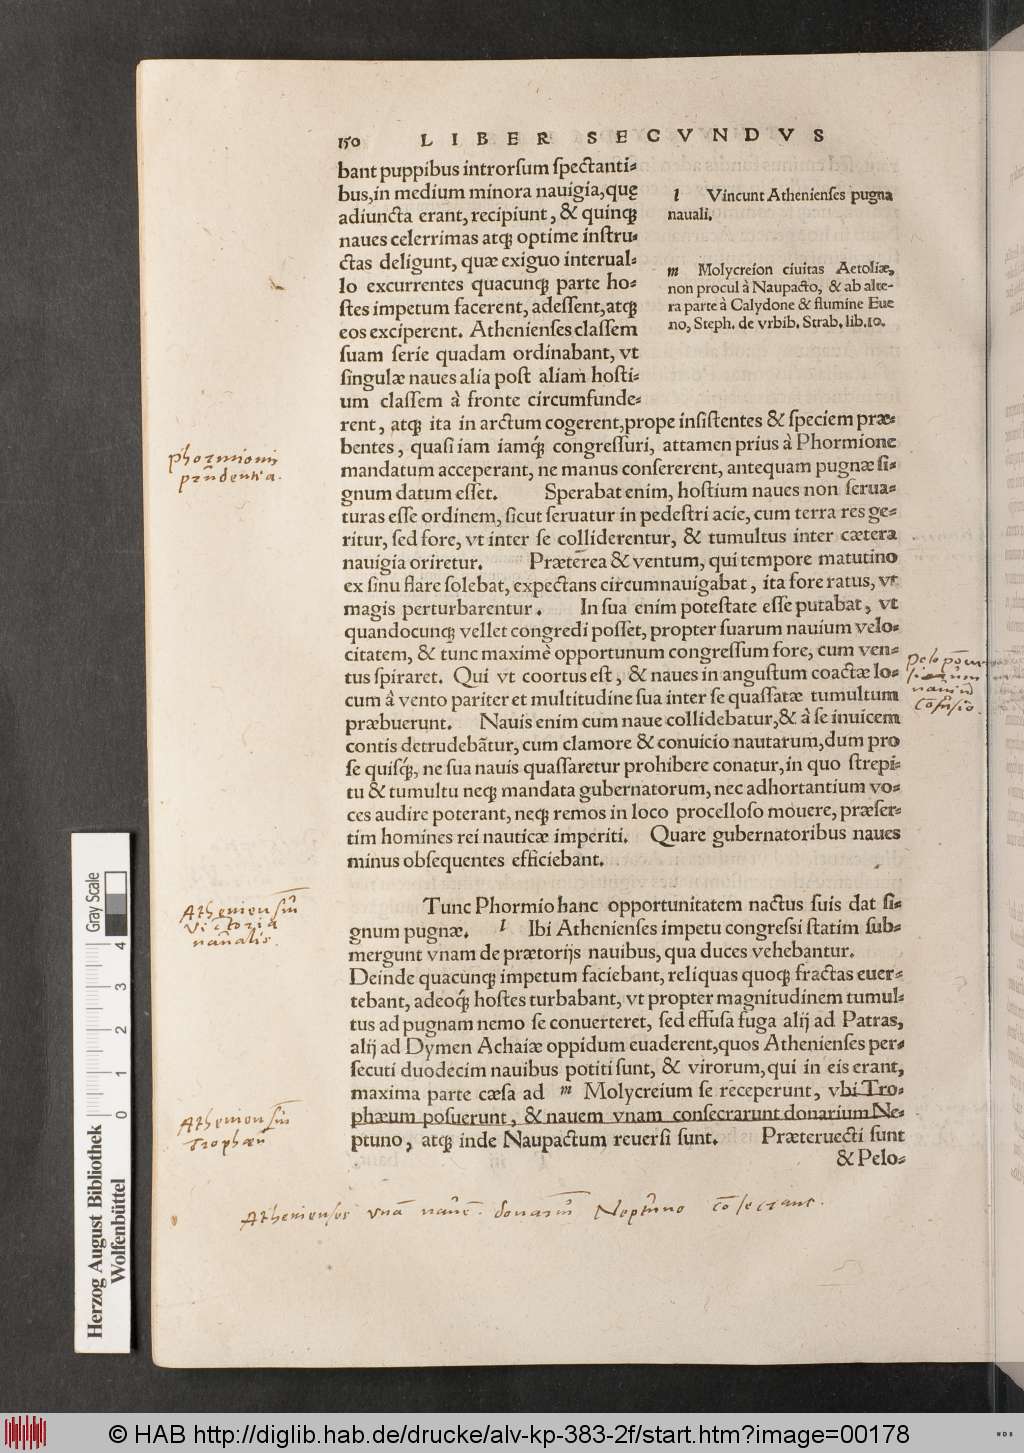 150 LIBER SECVNDVS
bant puppibus introrſum ſpectanti-
bus, in medium minora nauigia, quę
adiuncta erant, recipiunt, & quinqꝫ
naues celerrimas atqꝫ optime inſtru-
ctas deligunt, quæ exiguo interual-
lo excurrentes quacunqꝫ parte ho-
ſtes impetum facerent, adeſſent, atqꝫ
eos exciperent. Athenienſes claſſem
ſuam ſerie quadam ordinabant, vt
ſingulæ naues alia poſt aliam hoſti-
um claſſem à fronte circumfunde-
rent, atqꝫ ita in arctum cogerent, prope inſiſtentes & ſpeciem præ-
bentes, quaſi iam iamqꝫ́ congreſſuri, attamen prius à Phormione
mandatum acceperant, ne manus conſererent, antequam pugnæ ſi-
gnum datum eſſet. Sperabat enim, hoſtium naues non ſerua-
turas eſſe ordinem, ſicut ſeruatur in pedeſtri acie, cum terra res ge-
ritur, ſed fore, vt inter ſe colliderentur, & tumultus inter cætera
nauigia oriretur. Præterea & ventum, qui tempore matutino
ex ſinu flare ſolebat, expectans circumnauigabat, ita fore ratus, vt
magis perturbarentur. In ſua enim poteſtate eſſe putabat, vt
quandocunqꝫ vellet congredi poſſet, propter ſuarum nauium velo-
citatem, & tunc maximè opportunum congreſſum fore, cum ven-
tus ſpiraret. Qui vt coortus eſt, & naues in anguſtum coactæ lo-
cum à vento pariter et multitudine ſua inter ſe quaſſatæ tumultum
præbuerunt. Nauis enim cum naue collidebatur, & à ſe inuicem
contis detrudebãtur, cum clamore & conuicio nautarum, dum pro
ſe quiſqꝫ́, ne ſua nauis quaſſaretur prohibere conatur, in quo ſtrepi-
tu & tumultu neqꝫ mandata gubernatorum, nec adhortantium vo-
ces audire poterant, neqꝫ remos in loco procelloſo mouere, præſer-
tim homines rei nauticæ imperiti. Quare gubernatoribus naues
minus obſequentes efficiebant.
Tunc Phormio hanc opportunitatem nactus ſuis dat ſi-
gnum pugnæ. l Ibi Athenienſes impetu congreſsi ſtatim ſub-
mergunt vnam de prætorijs nauibus, qua duces vehebantur.
Deinde quacunqꝫ impetum faciebant, reliquas quoqꝫ fractas euer-
tebant, adeoqꝫ́ hoſtes turbabant, vt propter magnitudinem tumul-
tus ad pugnam nemo ſe conuerteret, ſed effuſa fuga alij ad Patras,
alij ad Dymen Achaiæ oppidum euaderent, quos Athenienſes per-
ſecuti duodecim nauibus potiti ſunt, & virorum, qui in eis erant,
maxima parte cæſa ad m Molycreium ſe receperunt, vbi Tro-
phæum poſuerunt, & nauem vnam conſecrarunt donarium Ne-
ptuno, atqꝫ inde Naupactum reuerſi ſunt. Præteruecti ſunt
& Pelo-
l Vincunt Athenienſes pugna
nauali.
m Molycreion ciuitas Aetoliæ,
non procul à Naupacto, & ab alte-
ra parte à Calydone & flumine Eue
no, Steph. de vrbib. Strab. lib. 10.
Phormionis
prudentia.
nauiũ
cõfusio.
Atheniensiũ
victoria
naualis.
Atheniensiũ
Trophæũ
Athenienses vnã nauẽ donariũ Neptuno cõsecrant.
Herzog August Bibliothek
Wolfenbüttel
Gray Scale
0 1 2 3 4
© HAB http://diglib.hab.de/drucke/alv-kp-383-2f/start.htm?image=00178